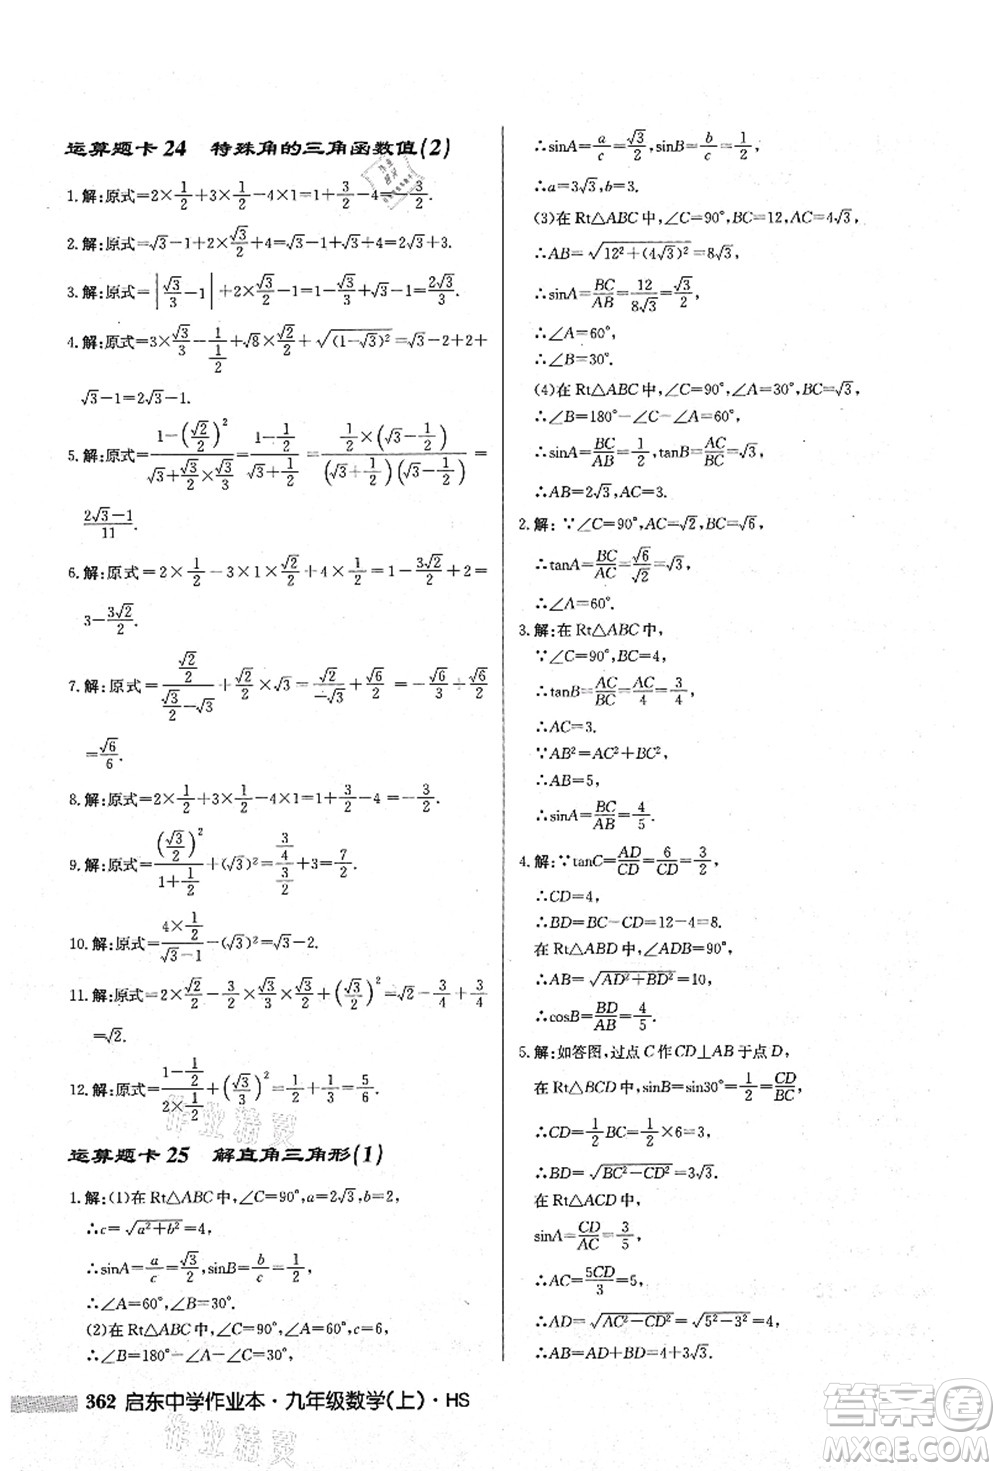 运算题卡24 特殊角的三角函数值(2)
1.解:原式=2×1/2+3×1/2-1/2×1=1+3/2-1/2=3/2.
2.解:原式=√3-1+2×√3/2+4=√3-1+√3+4=2√3+3.
3.解:原式=|√3/3-1|+2×√3/2=1-√3/3+√3=1+2√3/3.
4.解:原式=3×√3/3-1/(1/2)+√8×√2/2+√((1-√3)²)=√3-2+2+
√3-1=2√3-1.
5.解:原式=(1-(√2/2)²)/(√3/2×√3+√3/3)
2√3-1/11.
6.解:原式=2×1/2-3×1×√2/2+4×1/2=1-3√2/2+2=
3-3√2/2.
7.解:原式=(√2/2)/(√3/2-√3)+√2/2×√3=(√2/2)/(-√3/2)+√6/2=-√6/3+√6/2
=√6/6.
8.解:原式=2×1/2+3×1/2-4×1=1+3/2-4=-3/2.
9.解:原式=(√3/2)²/(1+1/2)+(√3)²=(3/4)/(3/2)+3=7/2.
10.解:原式=(4×1/2)/(√3-1)-(√3)²=√3-2.
11.解:原式=2×√2/2-√3/2×√3/2+(√3/2)²=√2-3/4+3/4
=√2.
12.解:原式=(1-1/2)/(2×1/2)+(√3/3)²=1/2+1/3=5/6.
运算题卡25 解直角三角形(1)
1.解:(1)在Rt△ABC中,∠C=90°,a=2√3,b=2,
∴c=√(a²+b²)=4,
∴sinA=a/c=√3/2,sinB=b/c=1/2,
∴∠A=60°,∠B=30°.
(2)在Rt△ABC中,∠C=90°,∠A=60°,c=6,
∴∠B=180°-∠A-∠C=30°,
∴sinA=a/c=√3/2,sinB=b/c=1/2,
∴a=3√3,b=3.
(3)在Rt△ABC中,∠C=90°,BC=12,AC=4√3,
∴AB=√(12²+(4√3)²)=8√3,
∴sinA=BC/AB=12/8√3=√3/2,
∴∠A=60°,
∴∠B=30°.
(4)在Rt△ABC中,∠C=90°,∠A=30°,BC=√3,
∴∠B=180°-∠C-∠A=60°,
∴sinA=BC/AB=1/2,tanB=AC/BC=√3,
∴AB=2√3,AC=3.
2.解:∵∠C=90°,AC=√2,BC=√6,
∴tanA=BC/AC=√6/√2=√3,
∴∠A=60°.
3.解:在Rt△ABC中,
∵∠C=90°,BC=4,
∴tanB=AC/BC=AC/4=3/4,
∴AC=3.
∵AB²=AC²+BC²,
∴AB=5,
∴sinA=BC/AB=4/5.
4.解:∵tanC=AD/CD=6/CD=3/2,
∴CD=4,
∴BD=BC-CD=12-4=8.
在Rt△ABD中,∠ADB=90°,
∴AB=√(AD²+BD²)=10,
∴cosB=BD/AB=4/5.
5.解:如答图,过点C作CD⊥AB于点D,
在Rt△BCD中,sinB=sin30°=1/2=CD/BC,
∴CD=1/2BC=1/2×6=3,
∴BD=√(BC²-CD²)=3√3.
在Rt△ACD中,
sinA=CD/AC=3/5,
∴AC=5CD/3=5,
∴AD=√(AC²-CD²)=√(5²-3²)=4,
∴AB=AD+BD=4+3√3.
362 启东中学作业本·九年级数学(上)·HS
作业精灵
答案圈
MXQE.COM